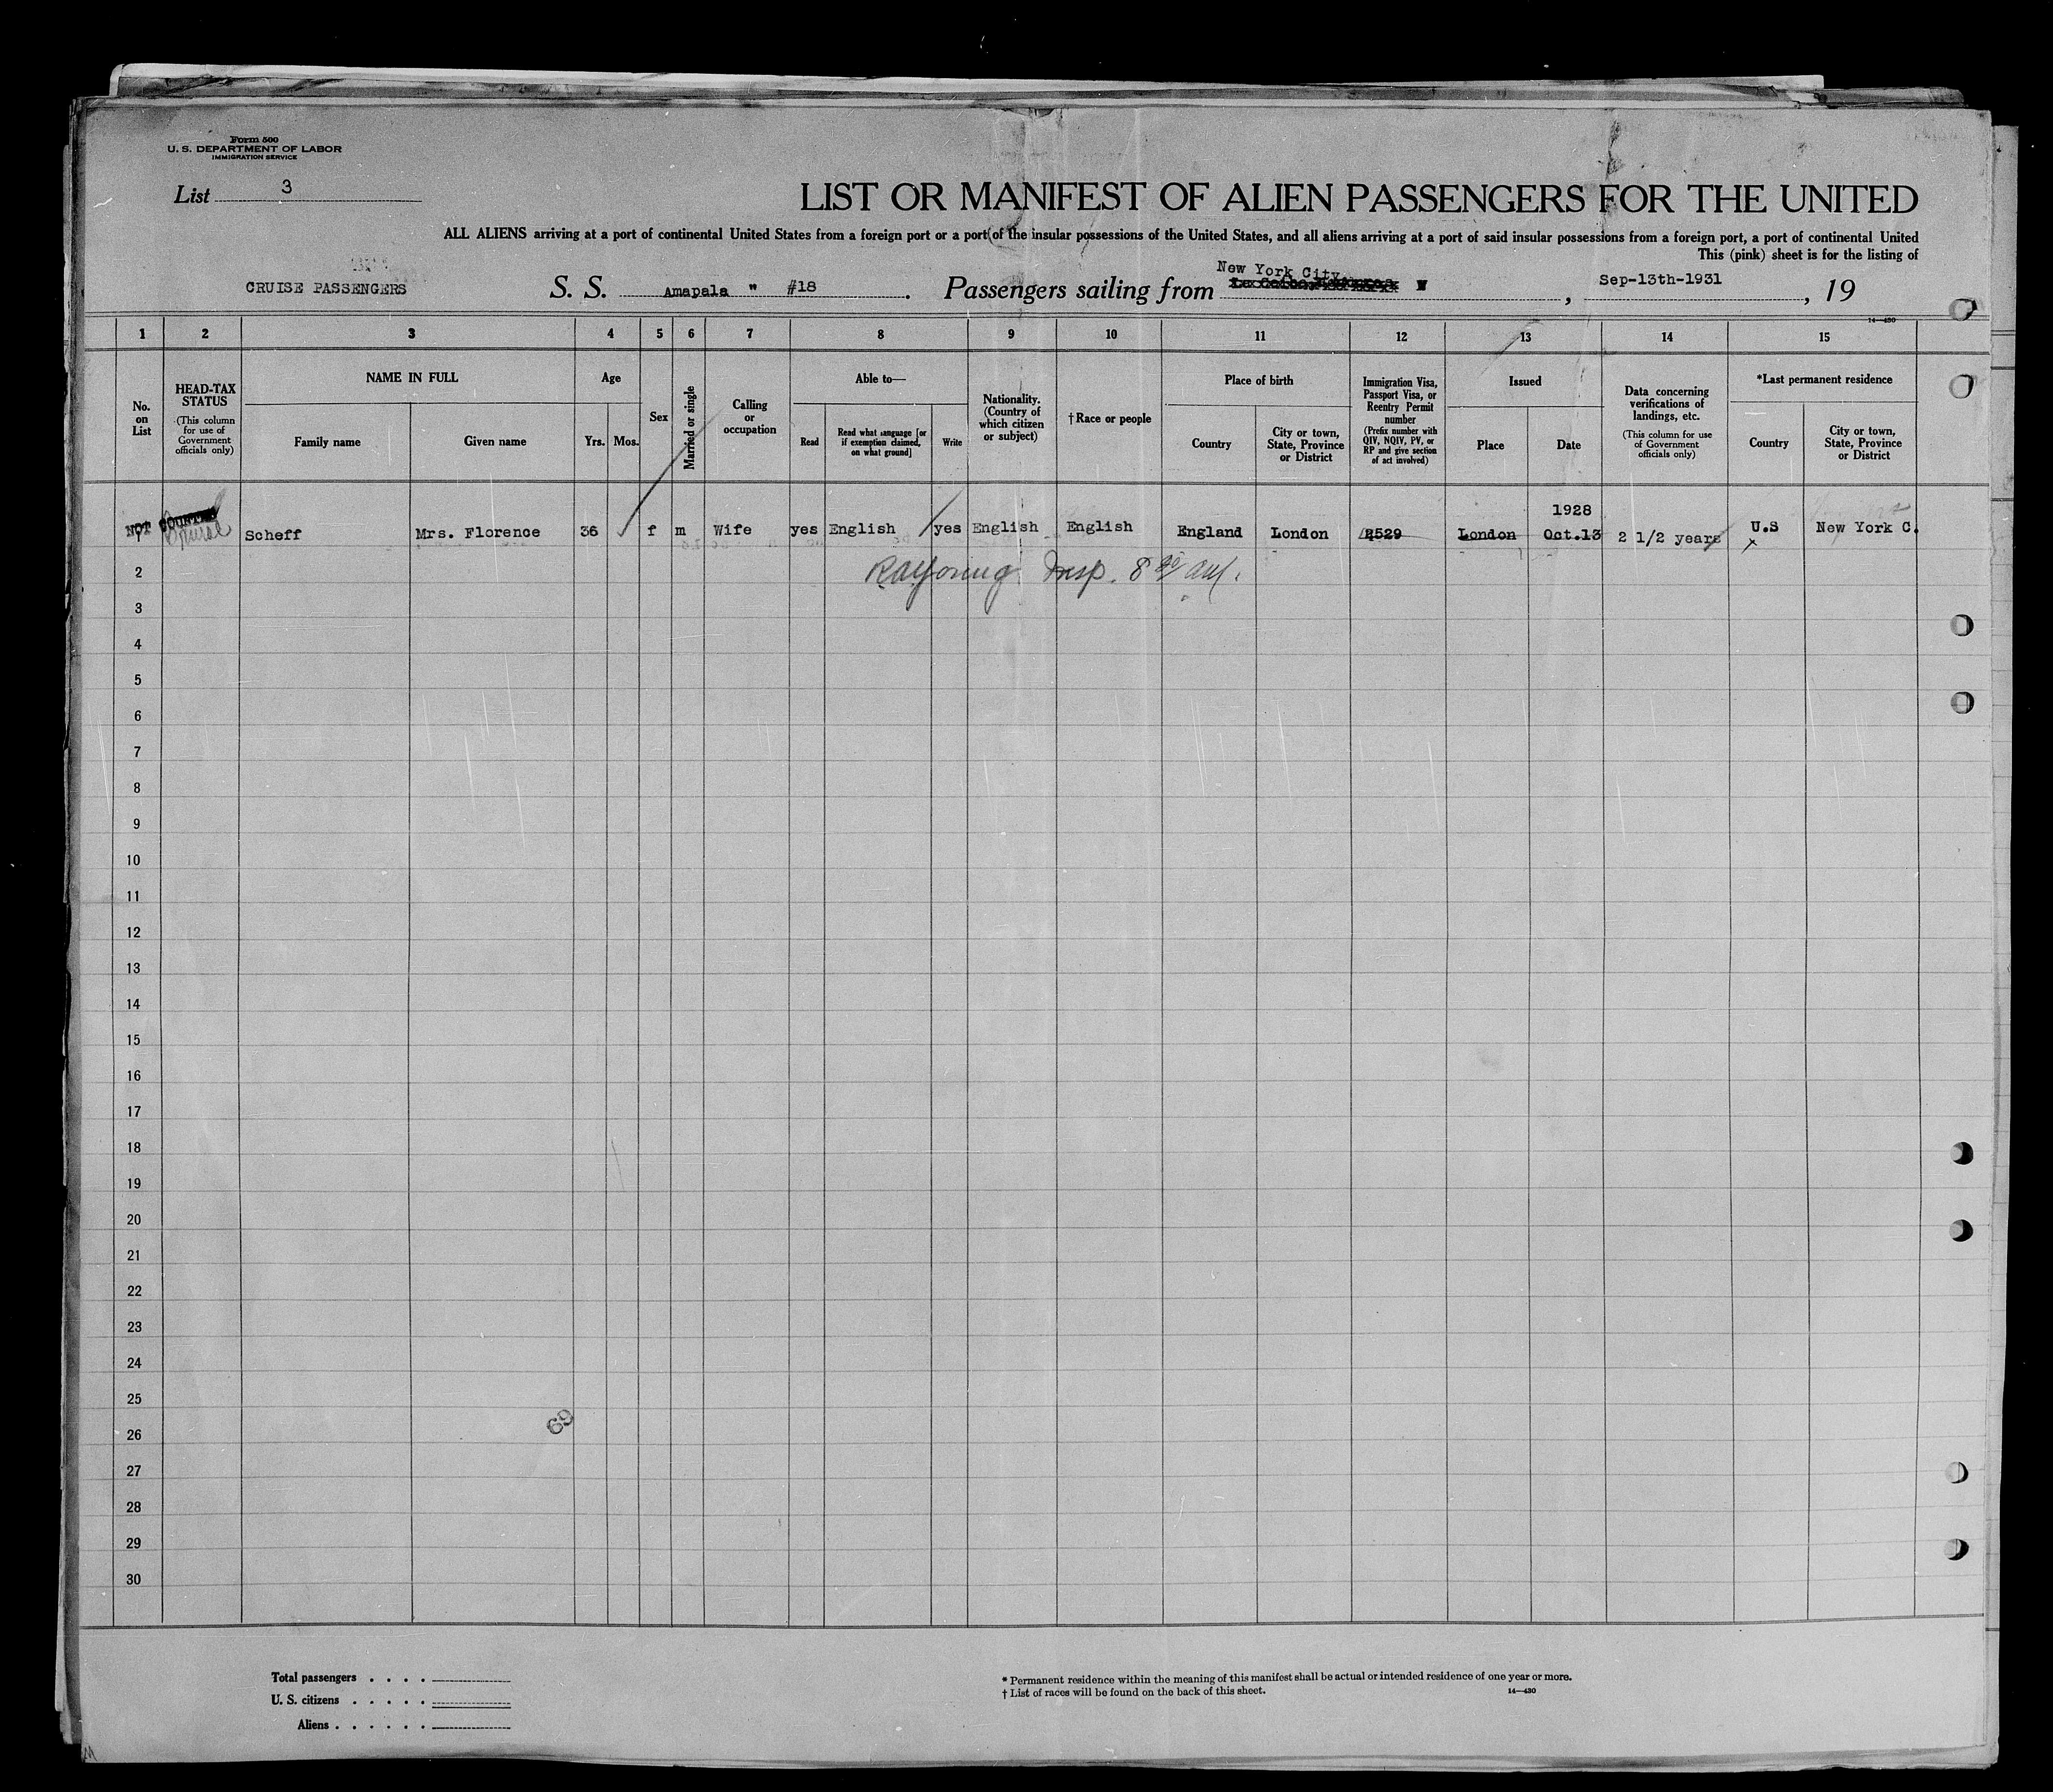 Form 500
U. S. DEPARTMENT OF LABOR
IMMIGRATION SERVICE
List 3
LIST OR MANIFEST OF ALIEN PASSENGERS FOR THE UNITED
ALL ALIENS arriving at a port of continental United States from a foreign port or a port of the insular possessions of the United States, and all aliens arriving at a port of said insular possessions from a foreign port, a port of continental United
This (pink) sheet is for the listing of
CRUISE PASSENGERS S. S. Amapala " #18 . Passengers sailing from New York City , Sep-13th-1931 , 19
14—430
1 2 3 4 5 6 7 8 9 10 11 12 13 14 15
No. on List
HEAD-TAX STATUS
(This column for use of Government officials only)
NAME IN FULL
Family name
Given name
Age
Yrs.
Mos.
Sex
Married or single
Calling or occupation
Able to—
Read
Read what language [or if exemption claimed, on what ground]
Write
Nationality. (Country of which citizen or subject)
†Race or people
Place of birth
Country
City or town, State, Province or District
Immigration Visa, Passport Visa, or Reentry Permit number
(Prefix number with QIV, NQIV, PV, or RP and give section of act involved)
Issued
Place
Date
Data concerning verifications of landings, etc.
(This column for use of Government officials only)
*Last permanent residence
Country
City or town, State, Province or District
1 NOT COUNTED Scheff Mrs. Florence 36 f m Wife yes English yes English English England London R529 London 1928 Oct.13 2 1/2 years U.S x New York C.
2 Insp. 8 30 am.
3
4
5
6
7
8
9
10
11
12
13
14
15
16
17
18
19
20
21
22
23
24
25
26
27
28
29
30
69
Total passengers . . . .
U. S. citizens . . . . .
Aliens . . . . . .
* Permanent residence within the meaning of this manifest shall be actual or intended residence of one year or more.
† List of races will be found on the back of this sheet.
14—430